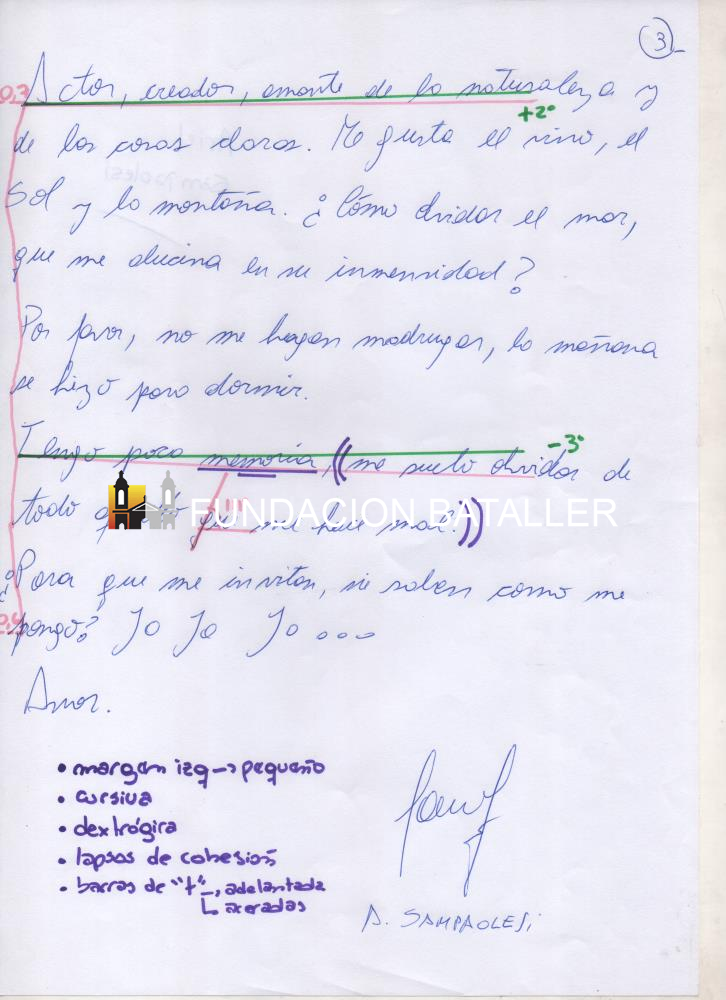 3
0.3
Actor, creador, amante de la naturaleza y
+2°
de las cosas claras. Me gusta el vino, el
Sol y la montaña. ¿Cómo olvidar el mar,
que me alucina en su inmensidad?
Por favor, no me hagan madrugar, la mañana
se hizo para dormir.
Tengo poca memoria, (me suelo olvidar de
-3°
todo que me hace mal.)
FUNDACION BATALLER
¿Para que me invitan, si saben como me
pongo? Ja Ja Ja ...
Amor.
• margen izq → pequeño
• cursiva
• dextrógira
• lapsos de cohesión
• barras de "t", adelantada
aceradas
A. SAMPAOLESI